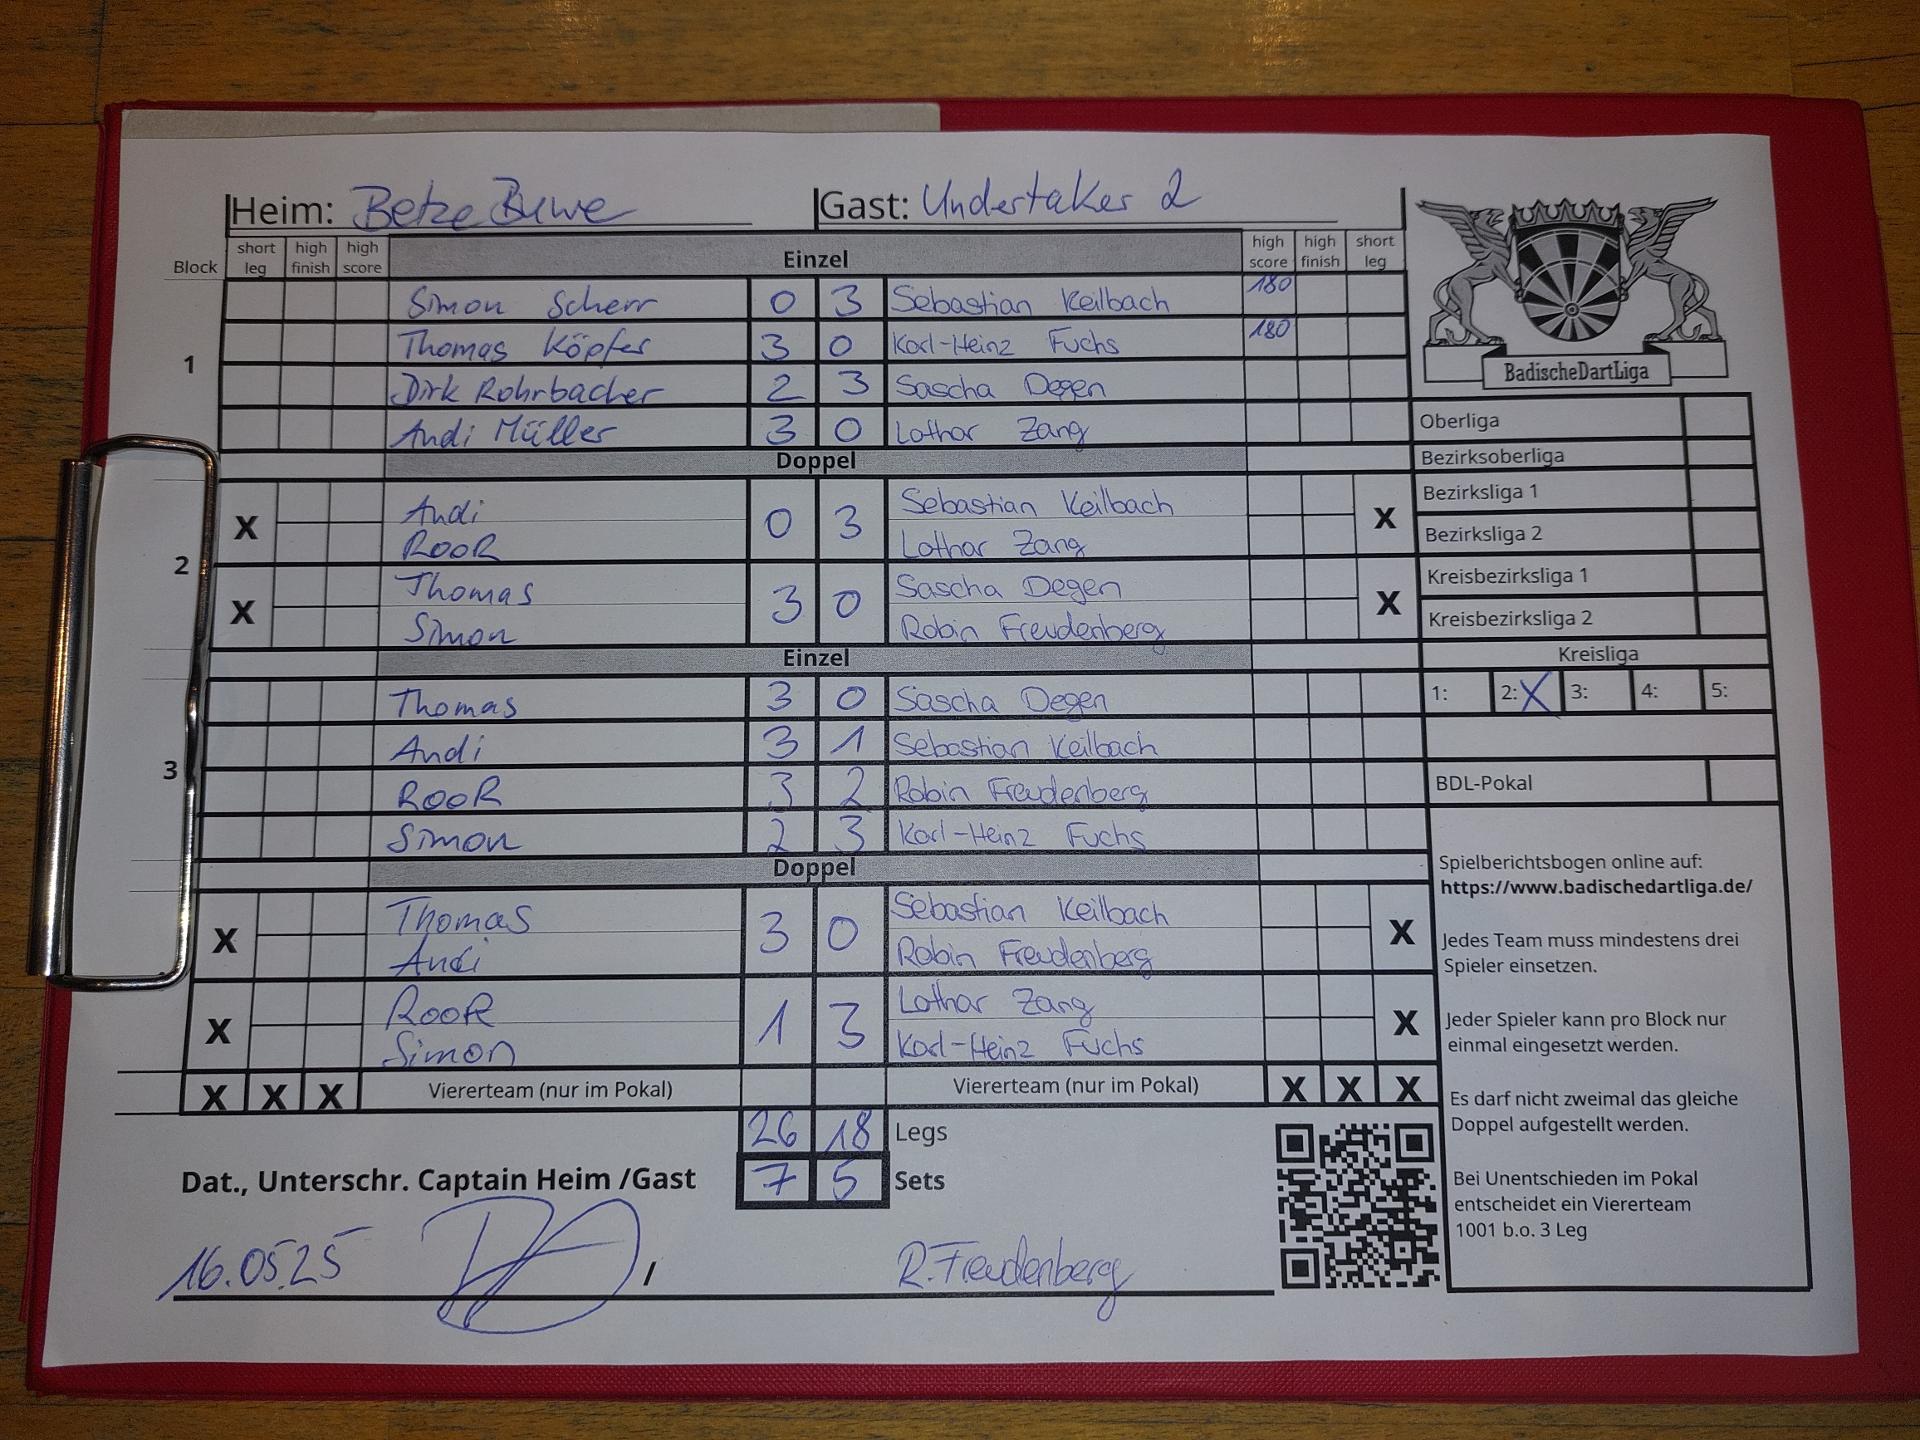 Heim: Betze Buwe Gast: Undertaker 2
Block short leg high finish high score Einzel high score high finish short leg
1
Simon Scherr 0 3 Sebastian Keilbach 180
Thomas Köpfer 3 0 Karl-Heinz Fuchs 180
Dirk Rohrbacher 2 3 Sascha Degen
Andi Müller 3 0 Lothar Zang
Doppel
2
X Andi 0 3 Sebastian Keilbach X
RooR Lothar Zang
X Thomas 3 0 Sascha Degen X
Simon Robin Freudenberg
Einzel
3
Thomas 3 0 Sascha Degen
Andi 3 1 Sebastian Keilbach
RooR 3 2 Robin Freudenberg
Simon 2 3 Karl-Heinz Fuchs
Doppel
X Thomas 3 0 Sebastian Keilbach X
Andi Robin Freudenberg
X RooR 1 3 Lothar Zang X
Simon Karl-Heinz Fuchs
X X X Vierterteam (nur im Pokal) Viererteam (nur im Pokal) X X X
26 18 Legs
Dat., Unterschr. Captain Heim /Gast 7 5 Sets
16.05.25 / R. Freudenberg
BadischeDartLiga
Oberliga
Bezirksoberliga
Bezirksliga 1
Bezirksliga 2
Kreisbezirksliga 1
Kreisbezirksliga 2
Kreisliga
1: 2: X 3: 4: 5:
BDL-Pokal
Spielberichtsbogen online auf:
https://www.badischedartliga.de/
Jedes Team muss mindestens drei
Spieler einsetzen.
Jeder Spieler kann pro Block nur
einmal eingesetzt werden.
Es darf nicht zweimal das gleiche
Doppel aufgestellt werden.
Bei Unentschieden im Pokal
entscheidet ein Viererteam
1001 b.o. 3 Leg